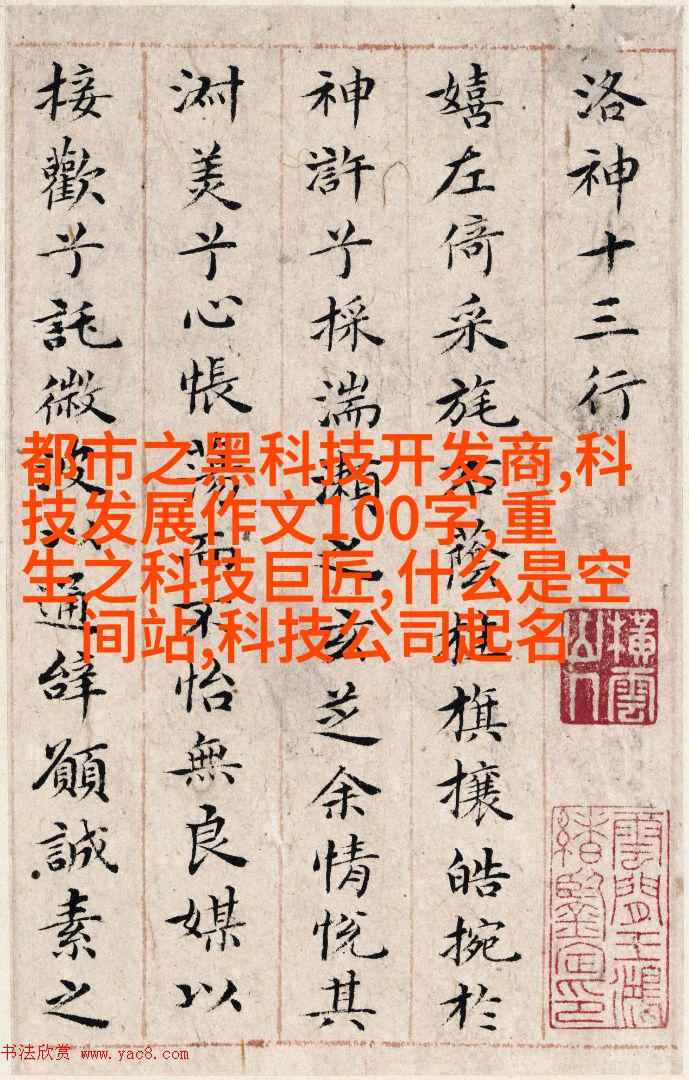 洛神十三行
嬉左倚采旄右蔭桂旗攘皓捥於
神滸兮採湍瀨之玄芝余情悅其
淑美兮心悵蕩而不怡無良媒以
接歡兮託微波以通辭願誠素之
都市之黑科技开发商,科
技发展作文100字,重
生之科技巨匠,什么是空
间站,科技公司起名
橫雲山人
書法欣赏 www.yac8.com